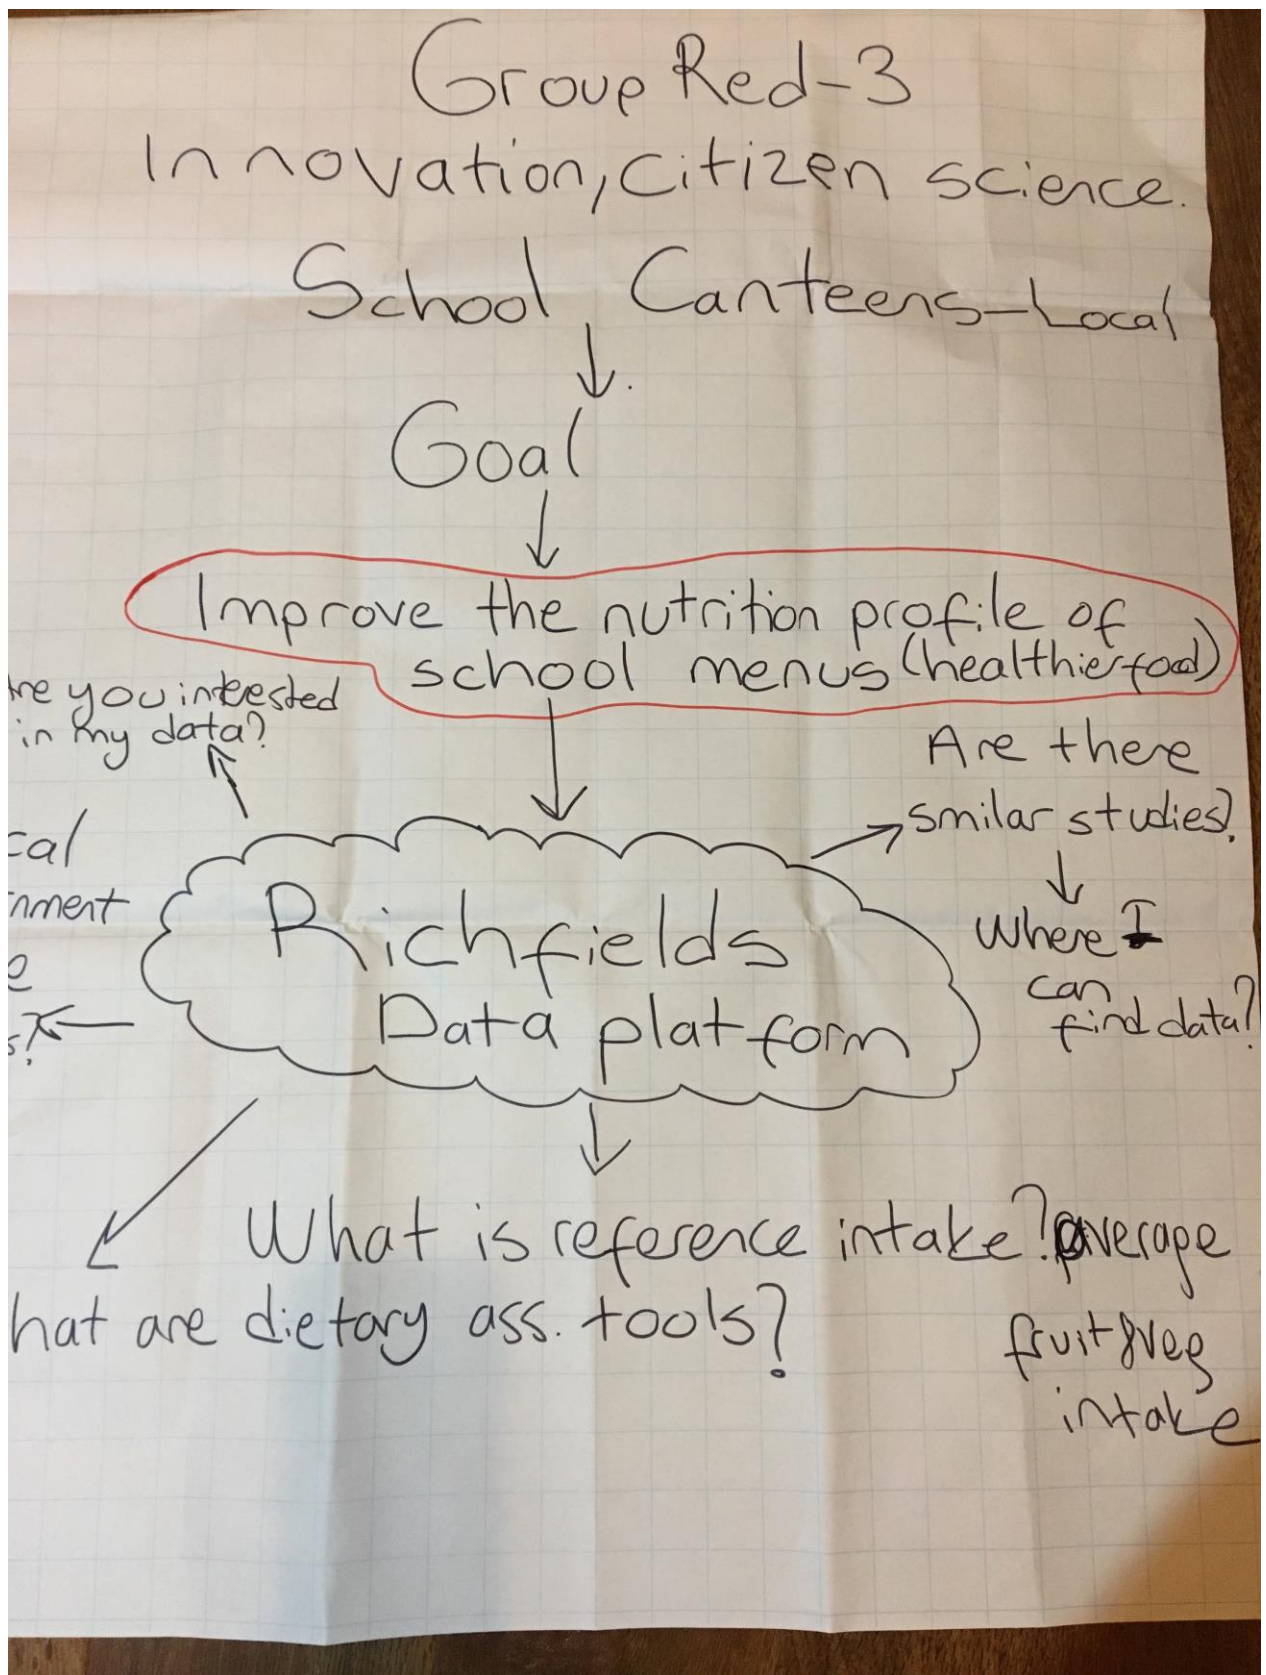 Group Red-3
Innovation, citizen science.
School Canteens-Local
Goal
Improve the nutrition profile of
school menus (healthier food)
re you interested
in my data?
Are there
smilar studies?
Where I
can
find data?
cal
nment
e
s?
Richfields
Data platform
What is reference intake? average
fruit & veg
intake
hat are dietary ass. tools?